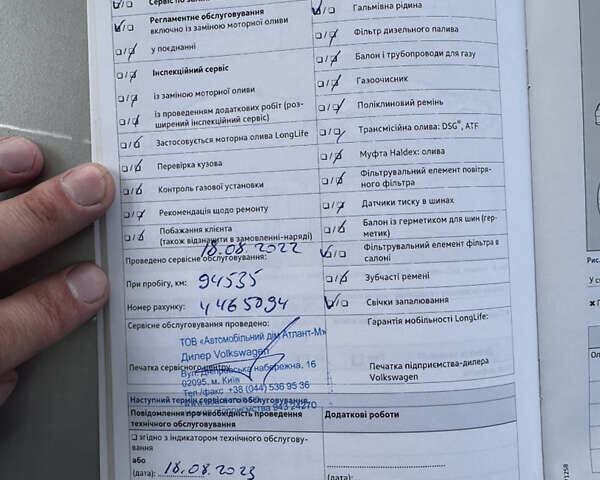 Сервіс по зам
Регламентне обслуговування
включно із заміною моторної оливи
у поєднанні
Інспекційний сервіс
із заміною моторної оливи
із проведенням додаткових робіт (роз-
ширений інспекційний сервіс)
Застосовується моторна олива LongLife
Перевірка кузова
Контроль газової установки
Рекомендація щодо ремонту
Побажання клієнта
(також відзначити в замовленні-наряді)
18.08.2022
Проведено сервісне обслуговування:
При пробігу, км: 94535
Номер рахунку: 4465094
Сервісне обслуговування проведено:
ТОВ «Автомобільний дім Атлант-М»
Дилер Volkswagen
Вул. Дніпровська набережна, 16
02095, м. Київ
Печатка сервісного центру
Тел./факс +38 (044) 536 95 36
Наступний термін сервісного обслуговування
943 24270
Повідомлення про необхідність проведення
технічного обслуговування
згідно з індикатором технічного обслугову-
вання
або
(дата): 18.08.2023
Гальмівна рідина
Фільтр дизельного палива
Балон і трубопроводи для газу
Газоочисник
Поліклиновий ремінь
Трансмісійна олива: DSG®, ATF
Муфта Haldex: олива
Фільтрувальний елемент повітря-
ного фільтра
Датчики тиску в шинах
Балон із герметиком для шин (гер-
метик)
Фільтрувальний елемент фільтра в
салоні
Зубчасті ремені
Свічки запалювання
Гарантія мобільності LongLife:
Печатка підприємства-дилера
Volkswagen
Додаткові роботи
(дата):
Рис.
У с
Ол